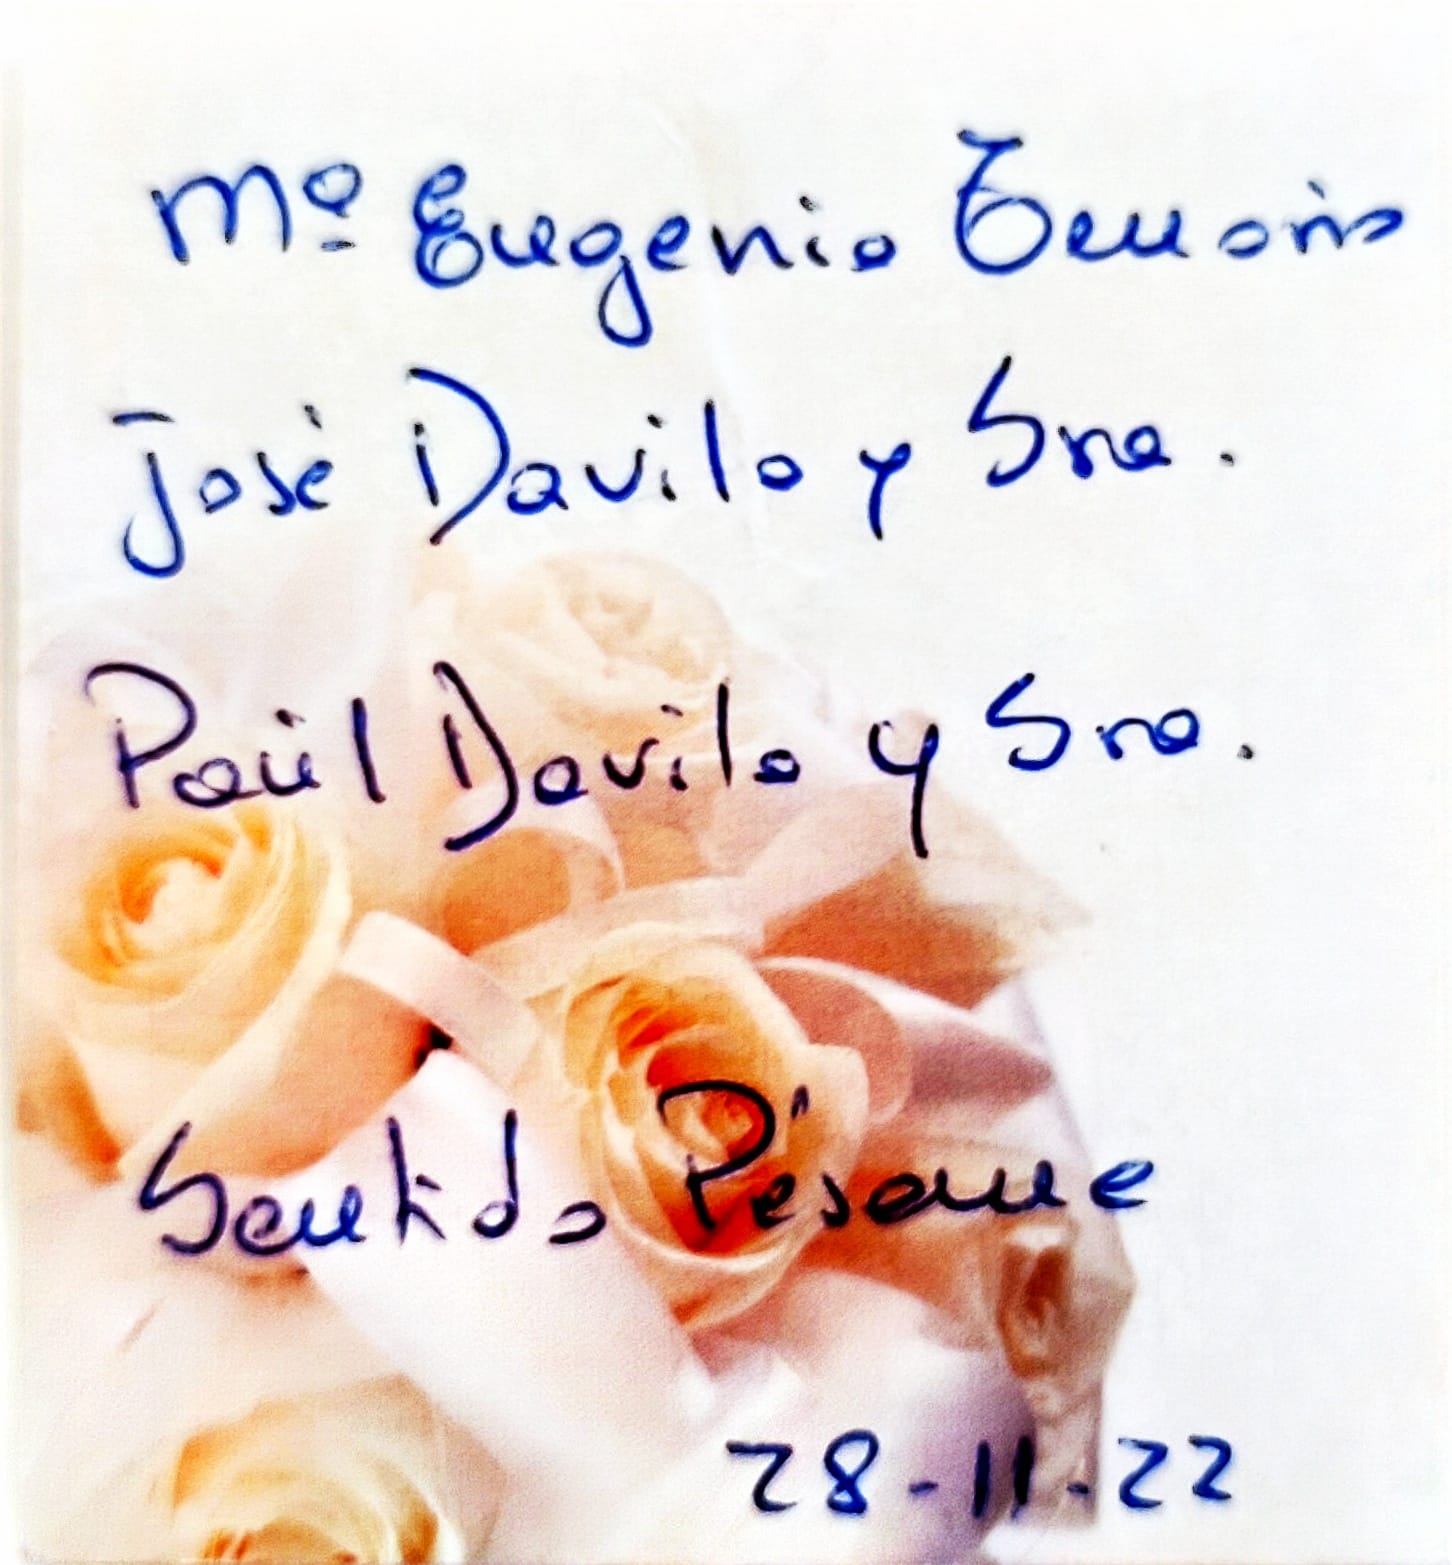 Mª Eugenia
José Davila y Sra.
Paúl Davila y Sra.
Sentido Pésame
28-11-22